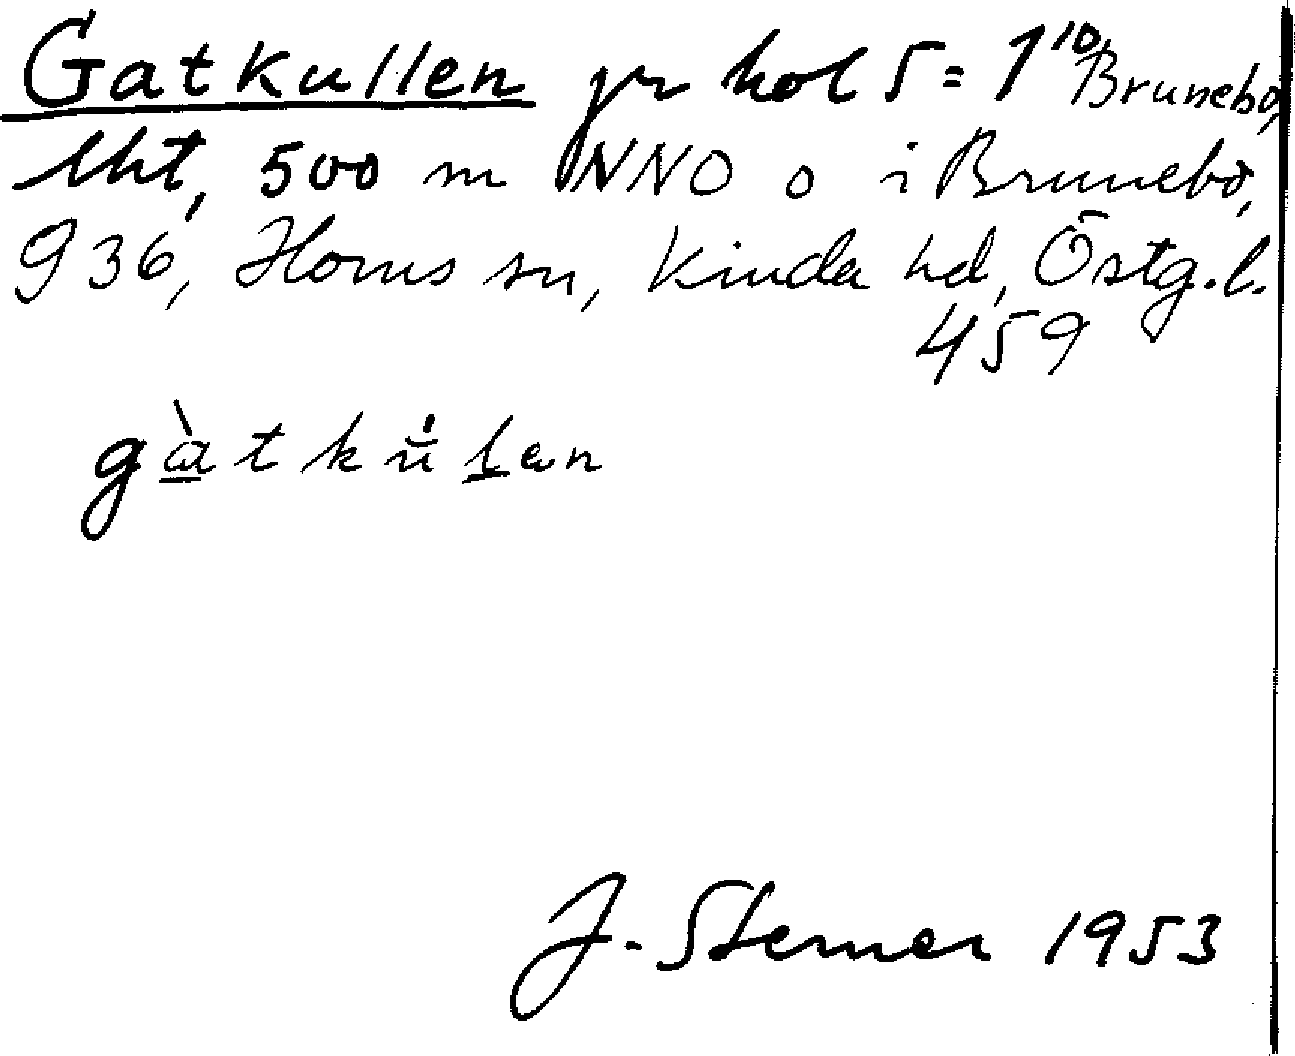 Gatkullen pr kol 5 = 1¹⁰ Brunebo,
lht, 500 m NNO o i Brunebo,
936, Horns sn, Kinda hd, Östg.l.
459
gàtku̇lən
J. Sterner 1953